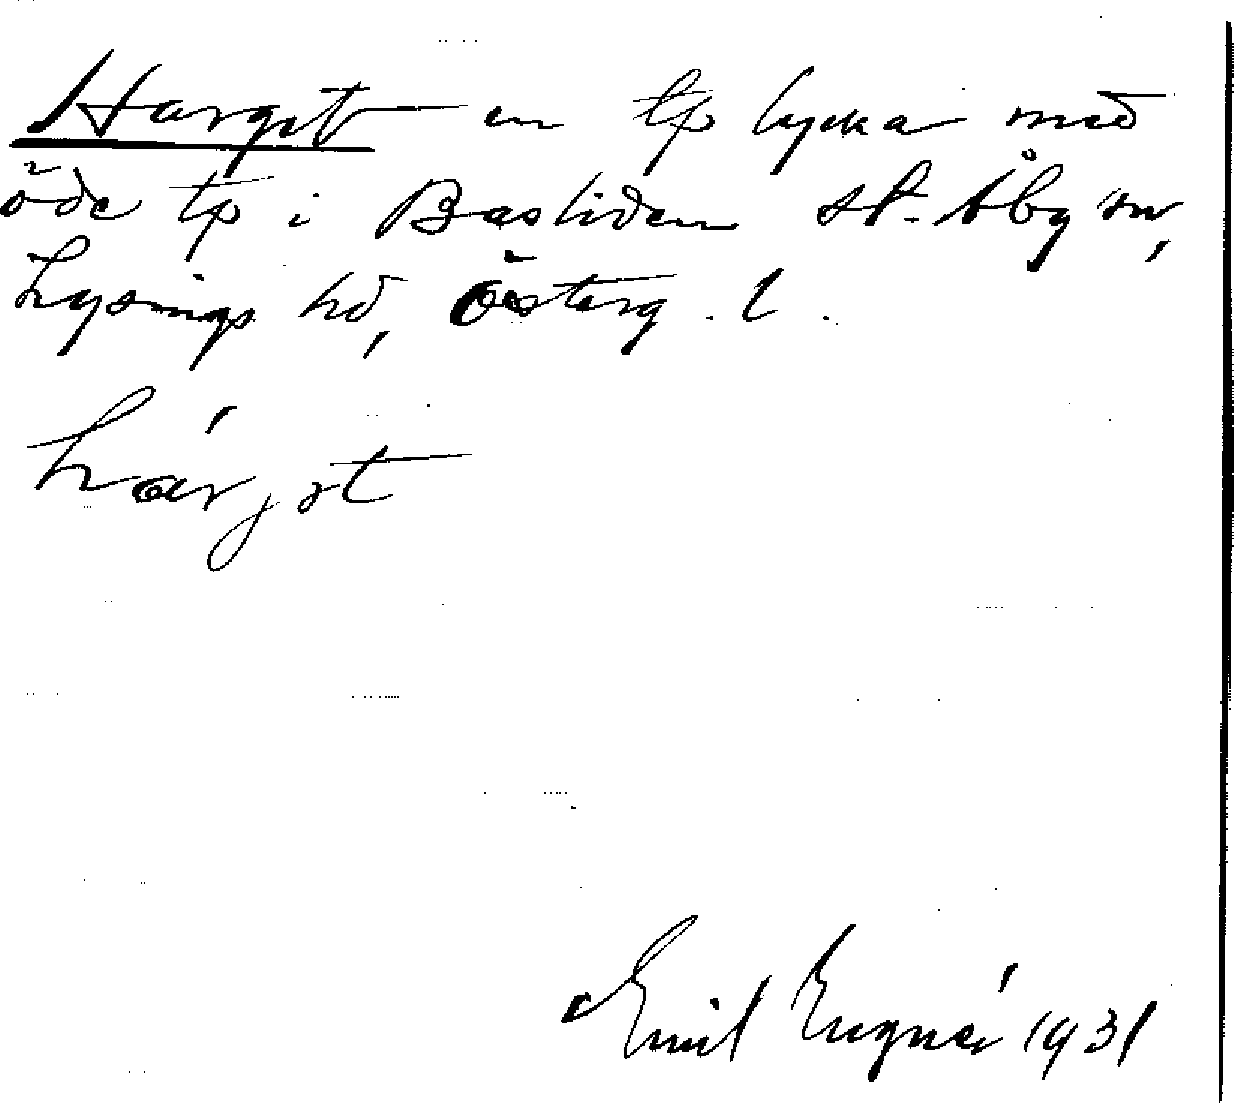 Hargit en tp lycka med
öde tp i Bastiden st. Åby sn,
Lysings hd, Österg. l.
hárjət
Emil Eugné 1931